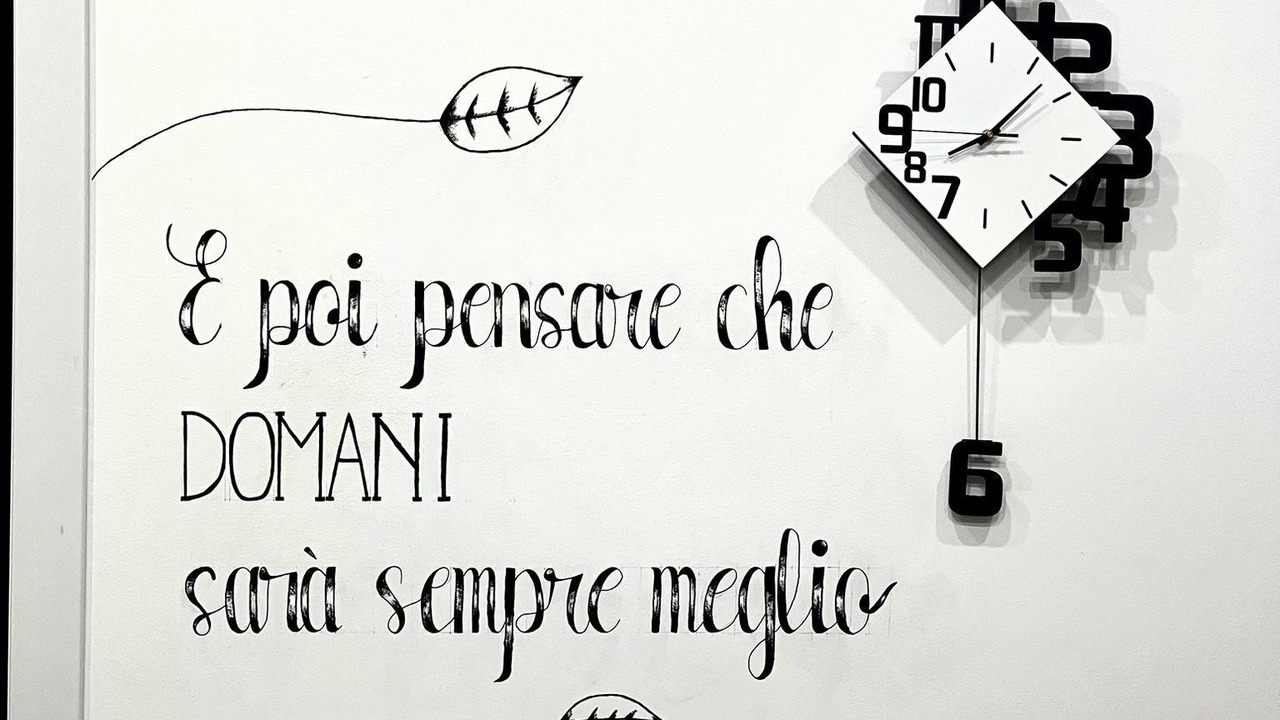 E poi pensare che
DOMANI
sarà sempre meglio
10
9
8
7
2
3
4
5
6